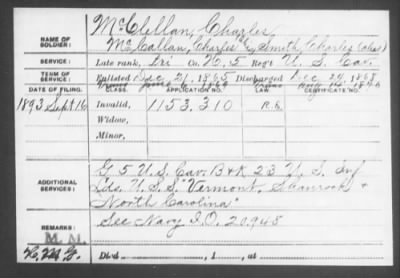 NAME OF SOLDIER:
McClellan, Charles
McCallan, Charles Smith, Charles (alias)
SERVICE:
Late rank, Pri Co. H, 5 Reg't U. S. Cav.
TERM OF SERVICE:
Enlisted Dec 21, 1865 Discharged Dec 24, 1868
DATE OF FILING.
CLASS.
APPLICATION NO.
LAW.
CERTIFICATE NO.
1893 Sept 16
Invalid,
1153,310
Widow,
Minor,
ADDITIONAL SERVICES:
G 5 U.S. Cav. B & K 23 U. S. Inf
Lds. U. S. S. "Vermont, Shamrock &
North Carolina"
REMARKS:
See Navy I.O. 20948
M. M.
Died , 1 , at